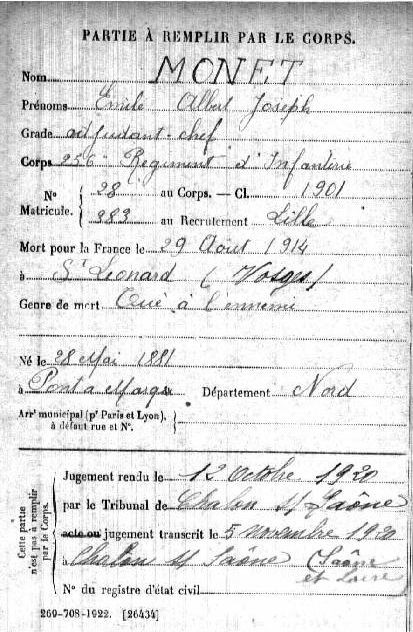 PARTIE À REMPLIR PAR LE CORPS.
Nom MONET
Prénoms Emile Albert Joseph
Grade adjudant-chef
Corps 256e Régiment d'Infanterie
N° Matricule. { 28 au Corps. — Cl. 1901
283 au Recrutement Lille
Mort pour la France le 29 Août 1914
à St Léonard (Vosges)
Genre de mort Tué à l'ennemi
Né le 28 Mai 1881
à Pont a Marcq Département Nord
Arrt municipal (pr Paris et Lyon), à défaut rue et N°.
Cette partie n'est pas à remplir par le Corps.
Jugement rendu le 12 Octobre 1920
par le Tribunal de Chalon s/ Saône
acte ou jugement transcrit le 5 novembre 1920
à Chalon s/ Saône (Saône et Loire
N° du registre d'état civil
269-708-1922. [26434]